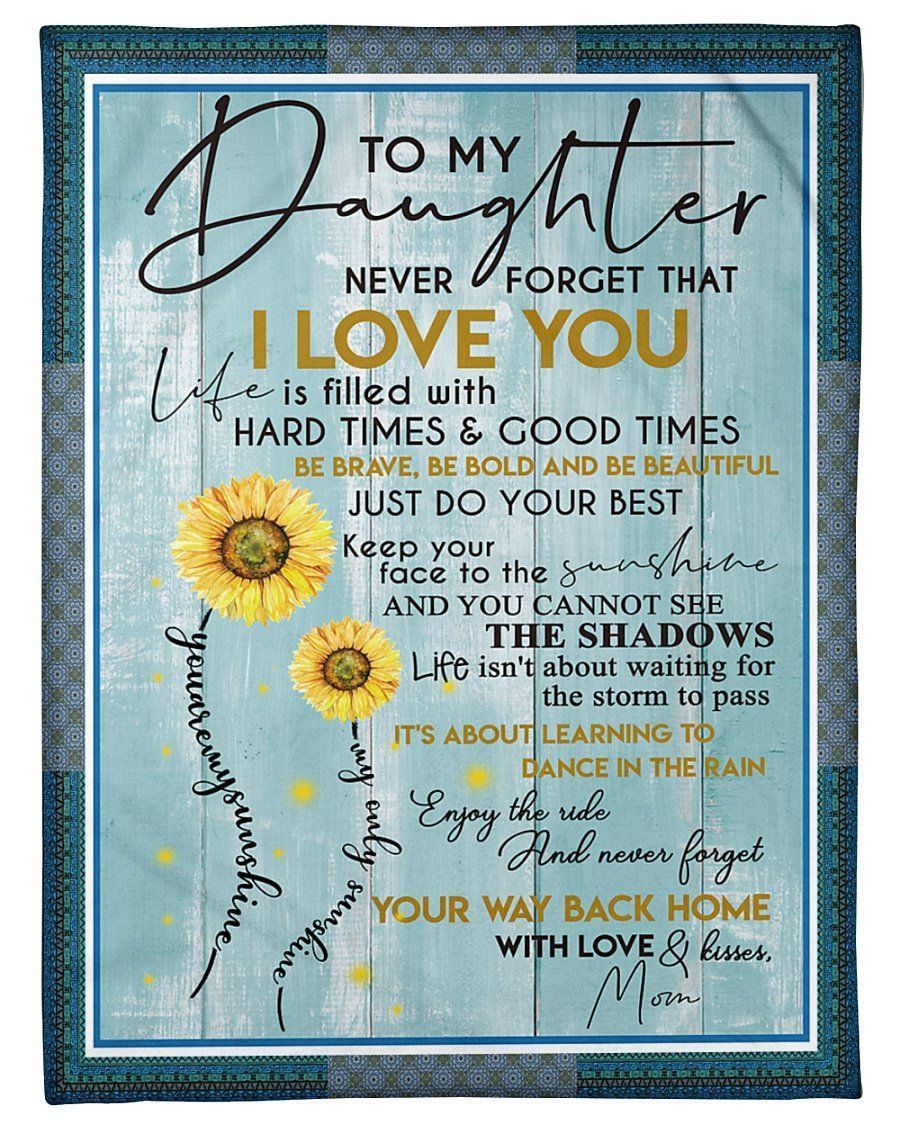 TO MY
Daughter
NEVER FORGET THAT
I LOVE YOU
Life is filled with
HARD TIMES & GOOD TIMES
BE BRAVE, BE BOLD AND BE BEAUTIFUL
JUST DO YOUR BEST
Keep your
face to the sunshine
AND YOU CANNOT SEE
THE SHADOWS
Life isn't about waiting for
the storm to pass
IT'S ABOUT LEARNING TO
DANCE IN THE RAIN
Enjoy the ride
And never forget
YOUR WAY BACK HOME
WITH LOVE & kisses,
Mom
you are my sunshine
my only sunshine